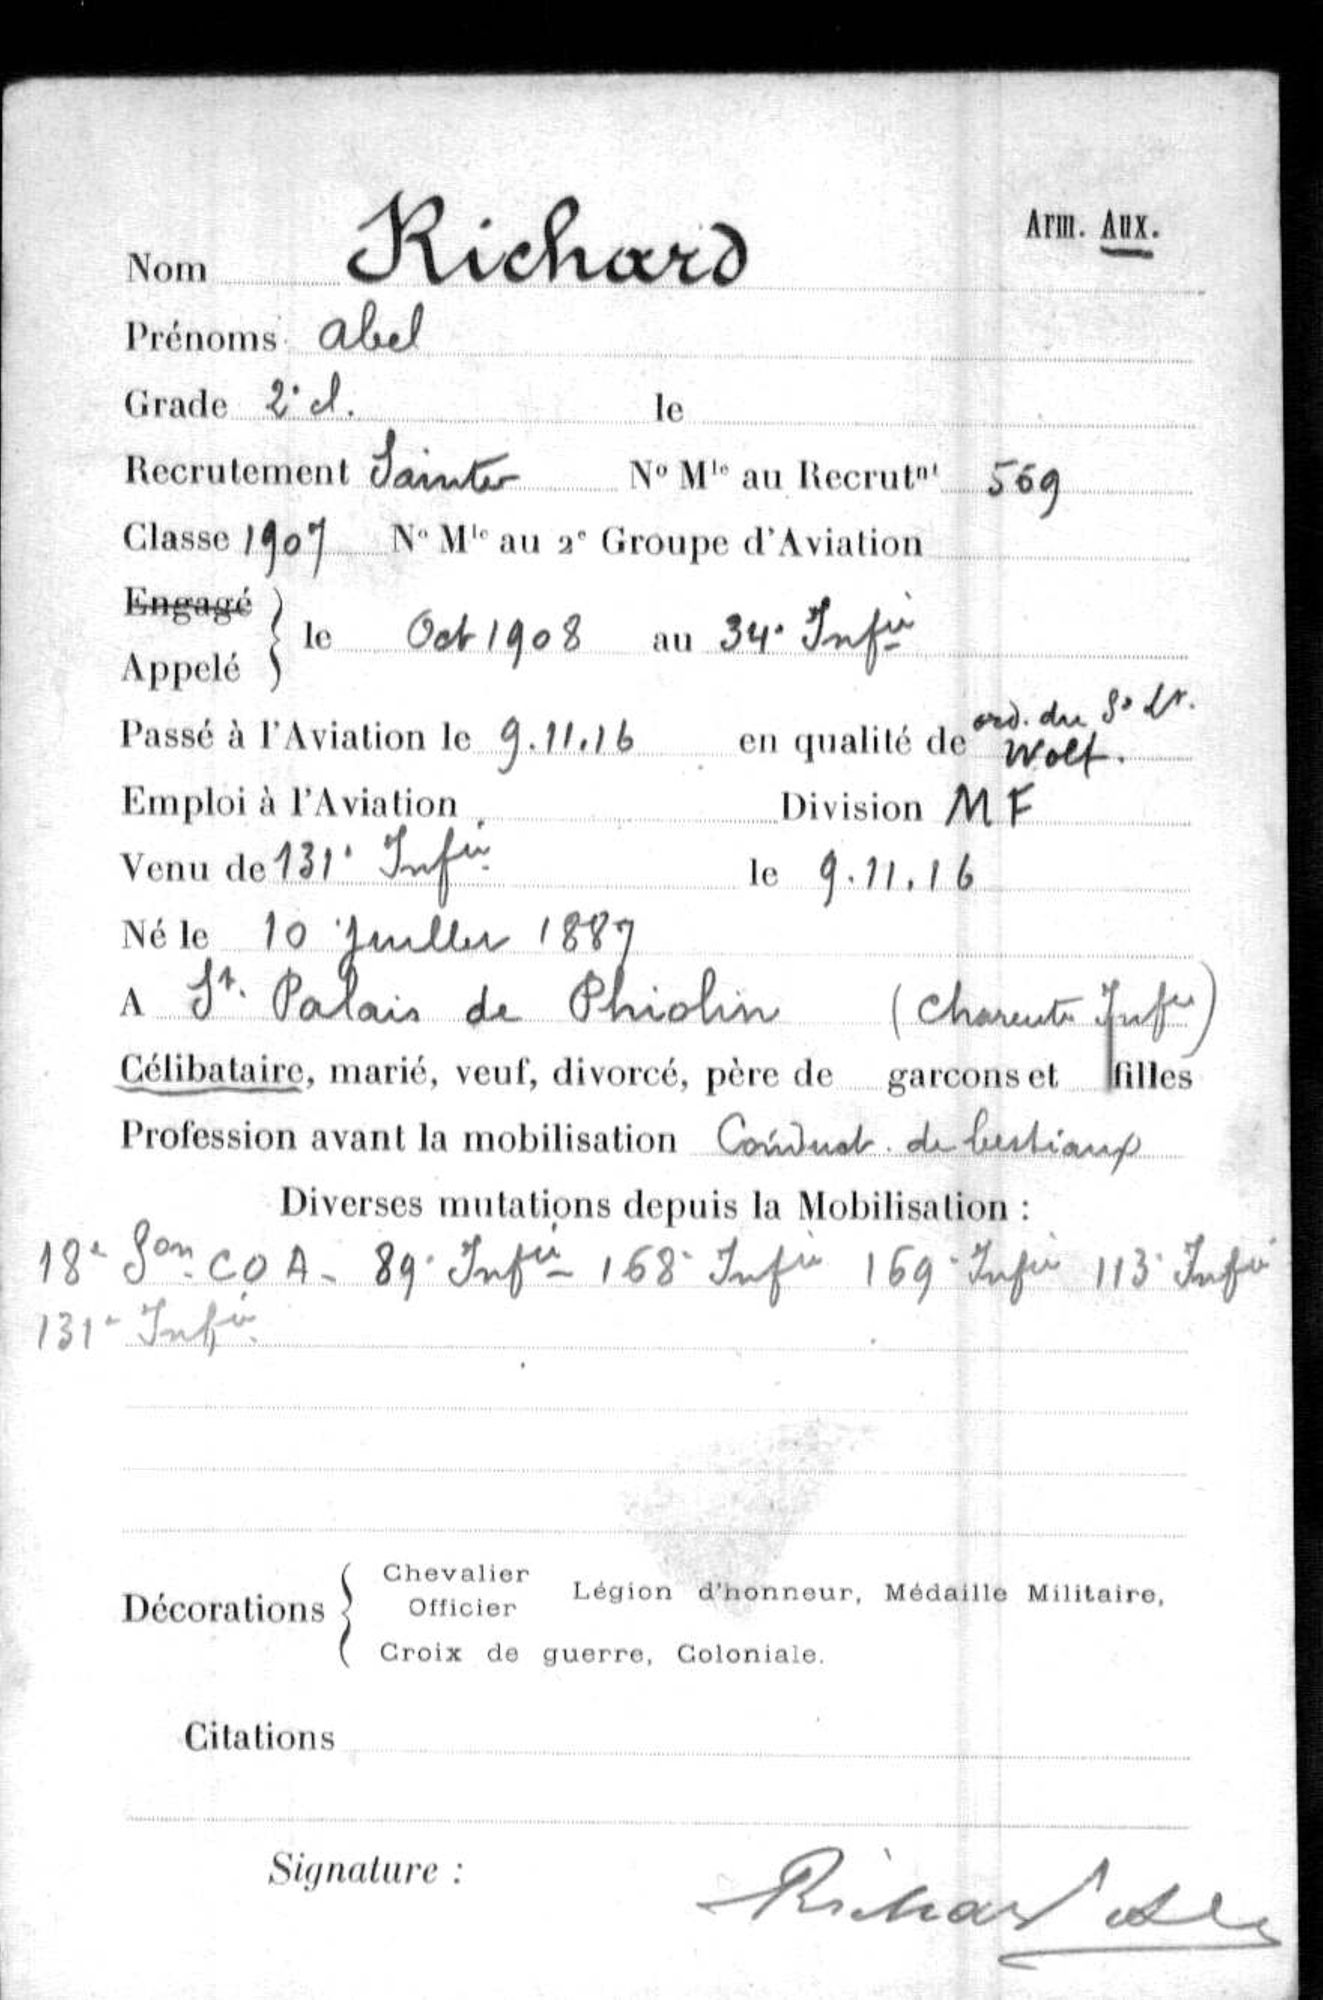 Arm. Aux.
Nom Richard
Prénoms Abel
Grade 2e cl. le
Recrutement Saintes No Mle au Recrutnt 569
Classe 1907 No Mle au 2e Groupe d'Aviation
Engagé
le Oct 1908 au 34e Infie
Appelé
Passé à l'Aviation le 9.11.16 en qualité de ord. du So Lt.
Wolf.
Emploi à l'Aviation Division MF
Venu de 131e Infie le 9.11.16
Né le 10 Juillet 1887
A St. Palais de Phiolin (Charente Infre)
Célibataire, marié, veuf, divorcé, père de garçons et filles
Profession avant la mobilisation Conduct. de bestiaux
Diverses mutations depuis la Mobilisation :
18e Son COA - 89e Infie - 168e Infie 169e Infie 113e Infie
131e Infie
Décorations Chevalier Officier Légion d'honneur, Médaille Militaire,
Croix de guerre, Coloniale.
Citations
Signature :
Richard Abel